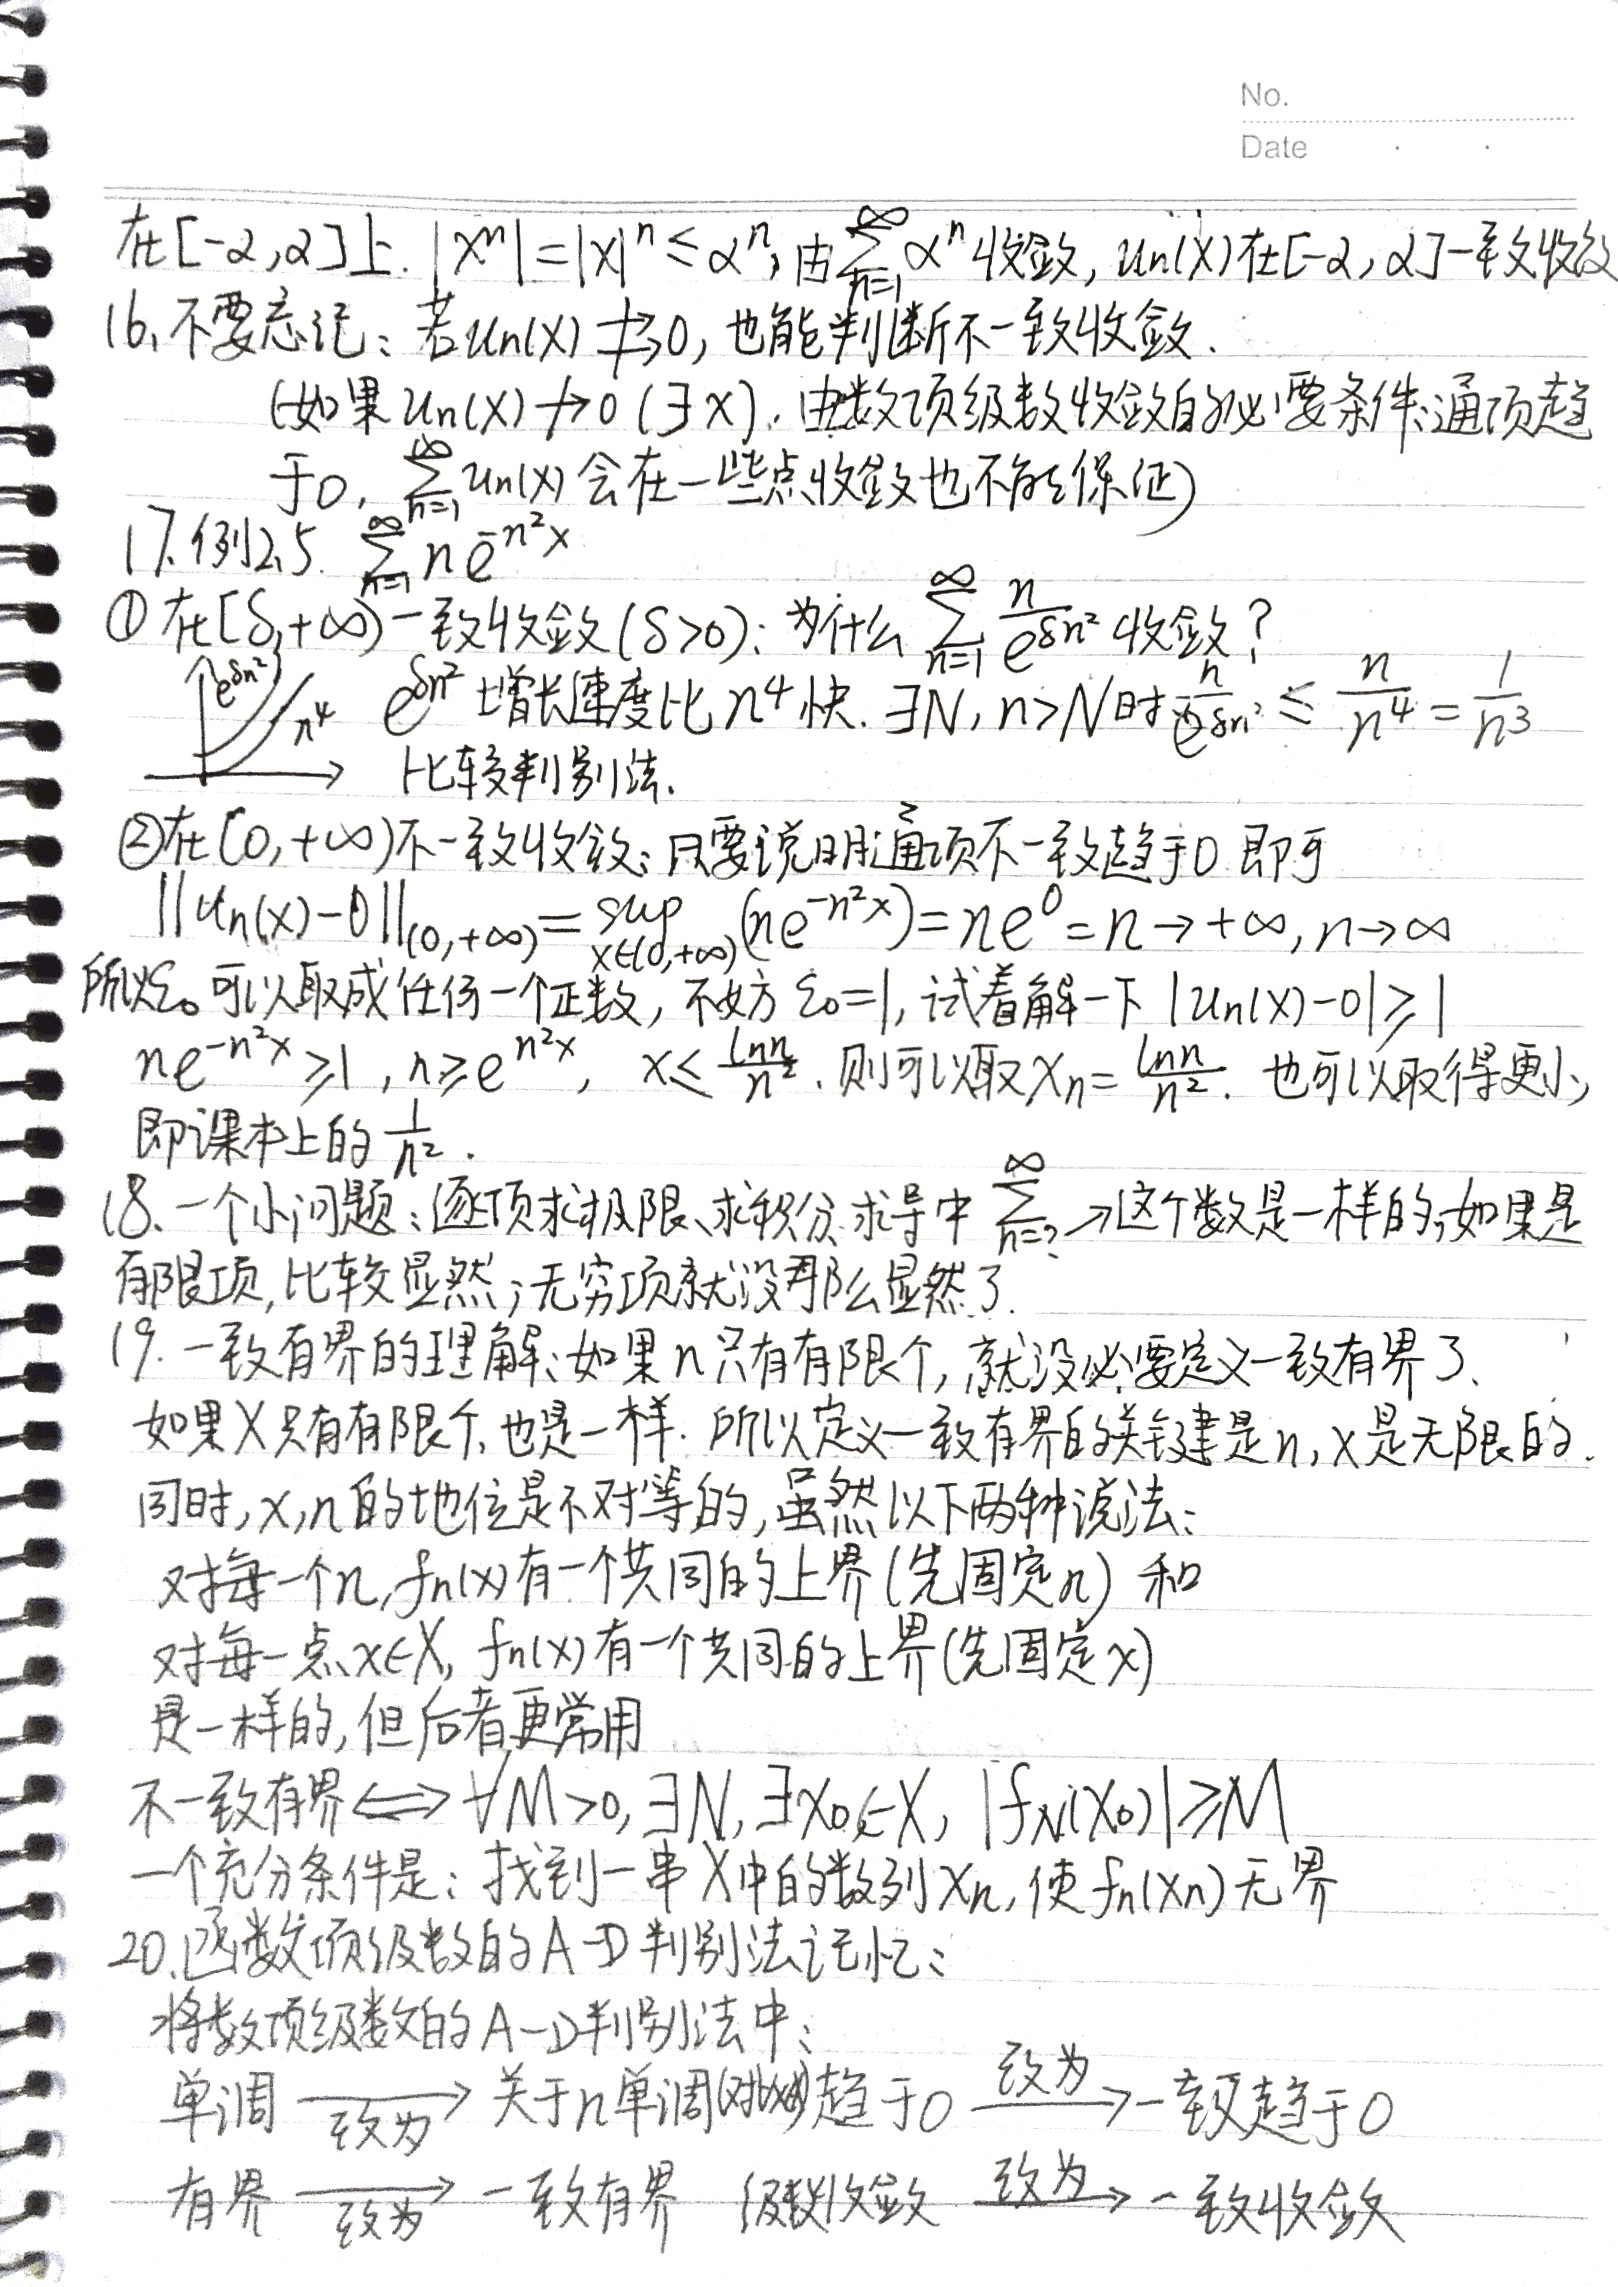 No.
Date
在[-α,α]上. |xⁿ|=|x|ⁿ≤αⁿ, 由∑_{n=1}^∞ αⁿ收敛, uₙ(x)在[-α,α]一致收敛
16. 不要忘记: 若uₙ(x)⇉̸0, 也能判断不一致收敛.
(如果uₙ(x)↛0 (∃x). 由数项级数收敛的必要条件:通项趋
于0, ∑_{n=1}^∞ uₙ(x) 会在一些点收敛也不能保证)
17. 例2.5. ∑_{n=1}^∞ n e^{-n²x}
① 在[δ,+∞)一致收敛(δ>0): 为什么 ∑_{n=1}^∞ n/e^{δn²} 收敛?
e^{δn²} n⁴ e^{δn²}增长速度比n⁴快. ∃N, n>N时 n/e^{δn²} ≤ n/n⁴ = 1/n³
比较判别法.
②在(0,+∞)不一致收敛: 只要说明通项不一致趋于0即可
||uₙ(x)-0||_{(0,+∞)} = sup_{x∈(0,+∞)} (ne^{-n²x}) = ne⁰ = n→+∞, n→∞
所以ε₀可以取成任何一个正数, 不妨ε₀=1, 试着解一下 |uₙ(x)-0|≥1
ne^{-n²x}≥1, n≥e^{n²x}, x≤ lnn/n². 则可以取xₙ= lnn/n². 也可以取得更小,
即课本上的 1/n².
18. 一个小问题: 逐项求极限、求积分、求导中 ∑_{n=?}^∞ →这个数是一样的,如果是
有限项, 比较显然; 无穷项就没那么显然了.
19. 一致有界的理解: 如果n只有有限个, 就没必要定义一致有界了.
如果X只有有限个, 也是一样. 所以定义一致有界的关键是n, x是无限的.
同时, x,n的地位是不对等的, 虽然以下两种说法:
对每一个n, fₙ(x)有一个共同的上界(先固定n) 和
对每一点x∈X, fₙ(x)有一个共同的上界(先固定x)
是一样的, 但后者更常用
不一致有界⟺∀M>0, ∃N, ∃x₀∈X, |f_N(x₀)|≥M
一个充分条件是: 找到一串X中的数列xₙ, 使fₙ(xₙ)无界
20. 函数项级数的A-D判别法记忆:
将数项级数的A-D判别法中:
单调 →改为 关于n单调(对∀x) 趋于0 →改为 一致趋于0
有界 →改为 一致有界 级数收敛 →改为 一致收敛